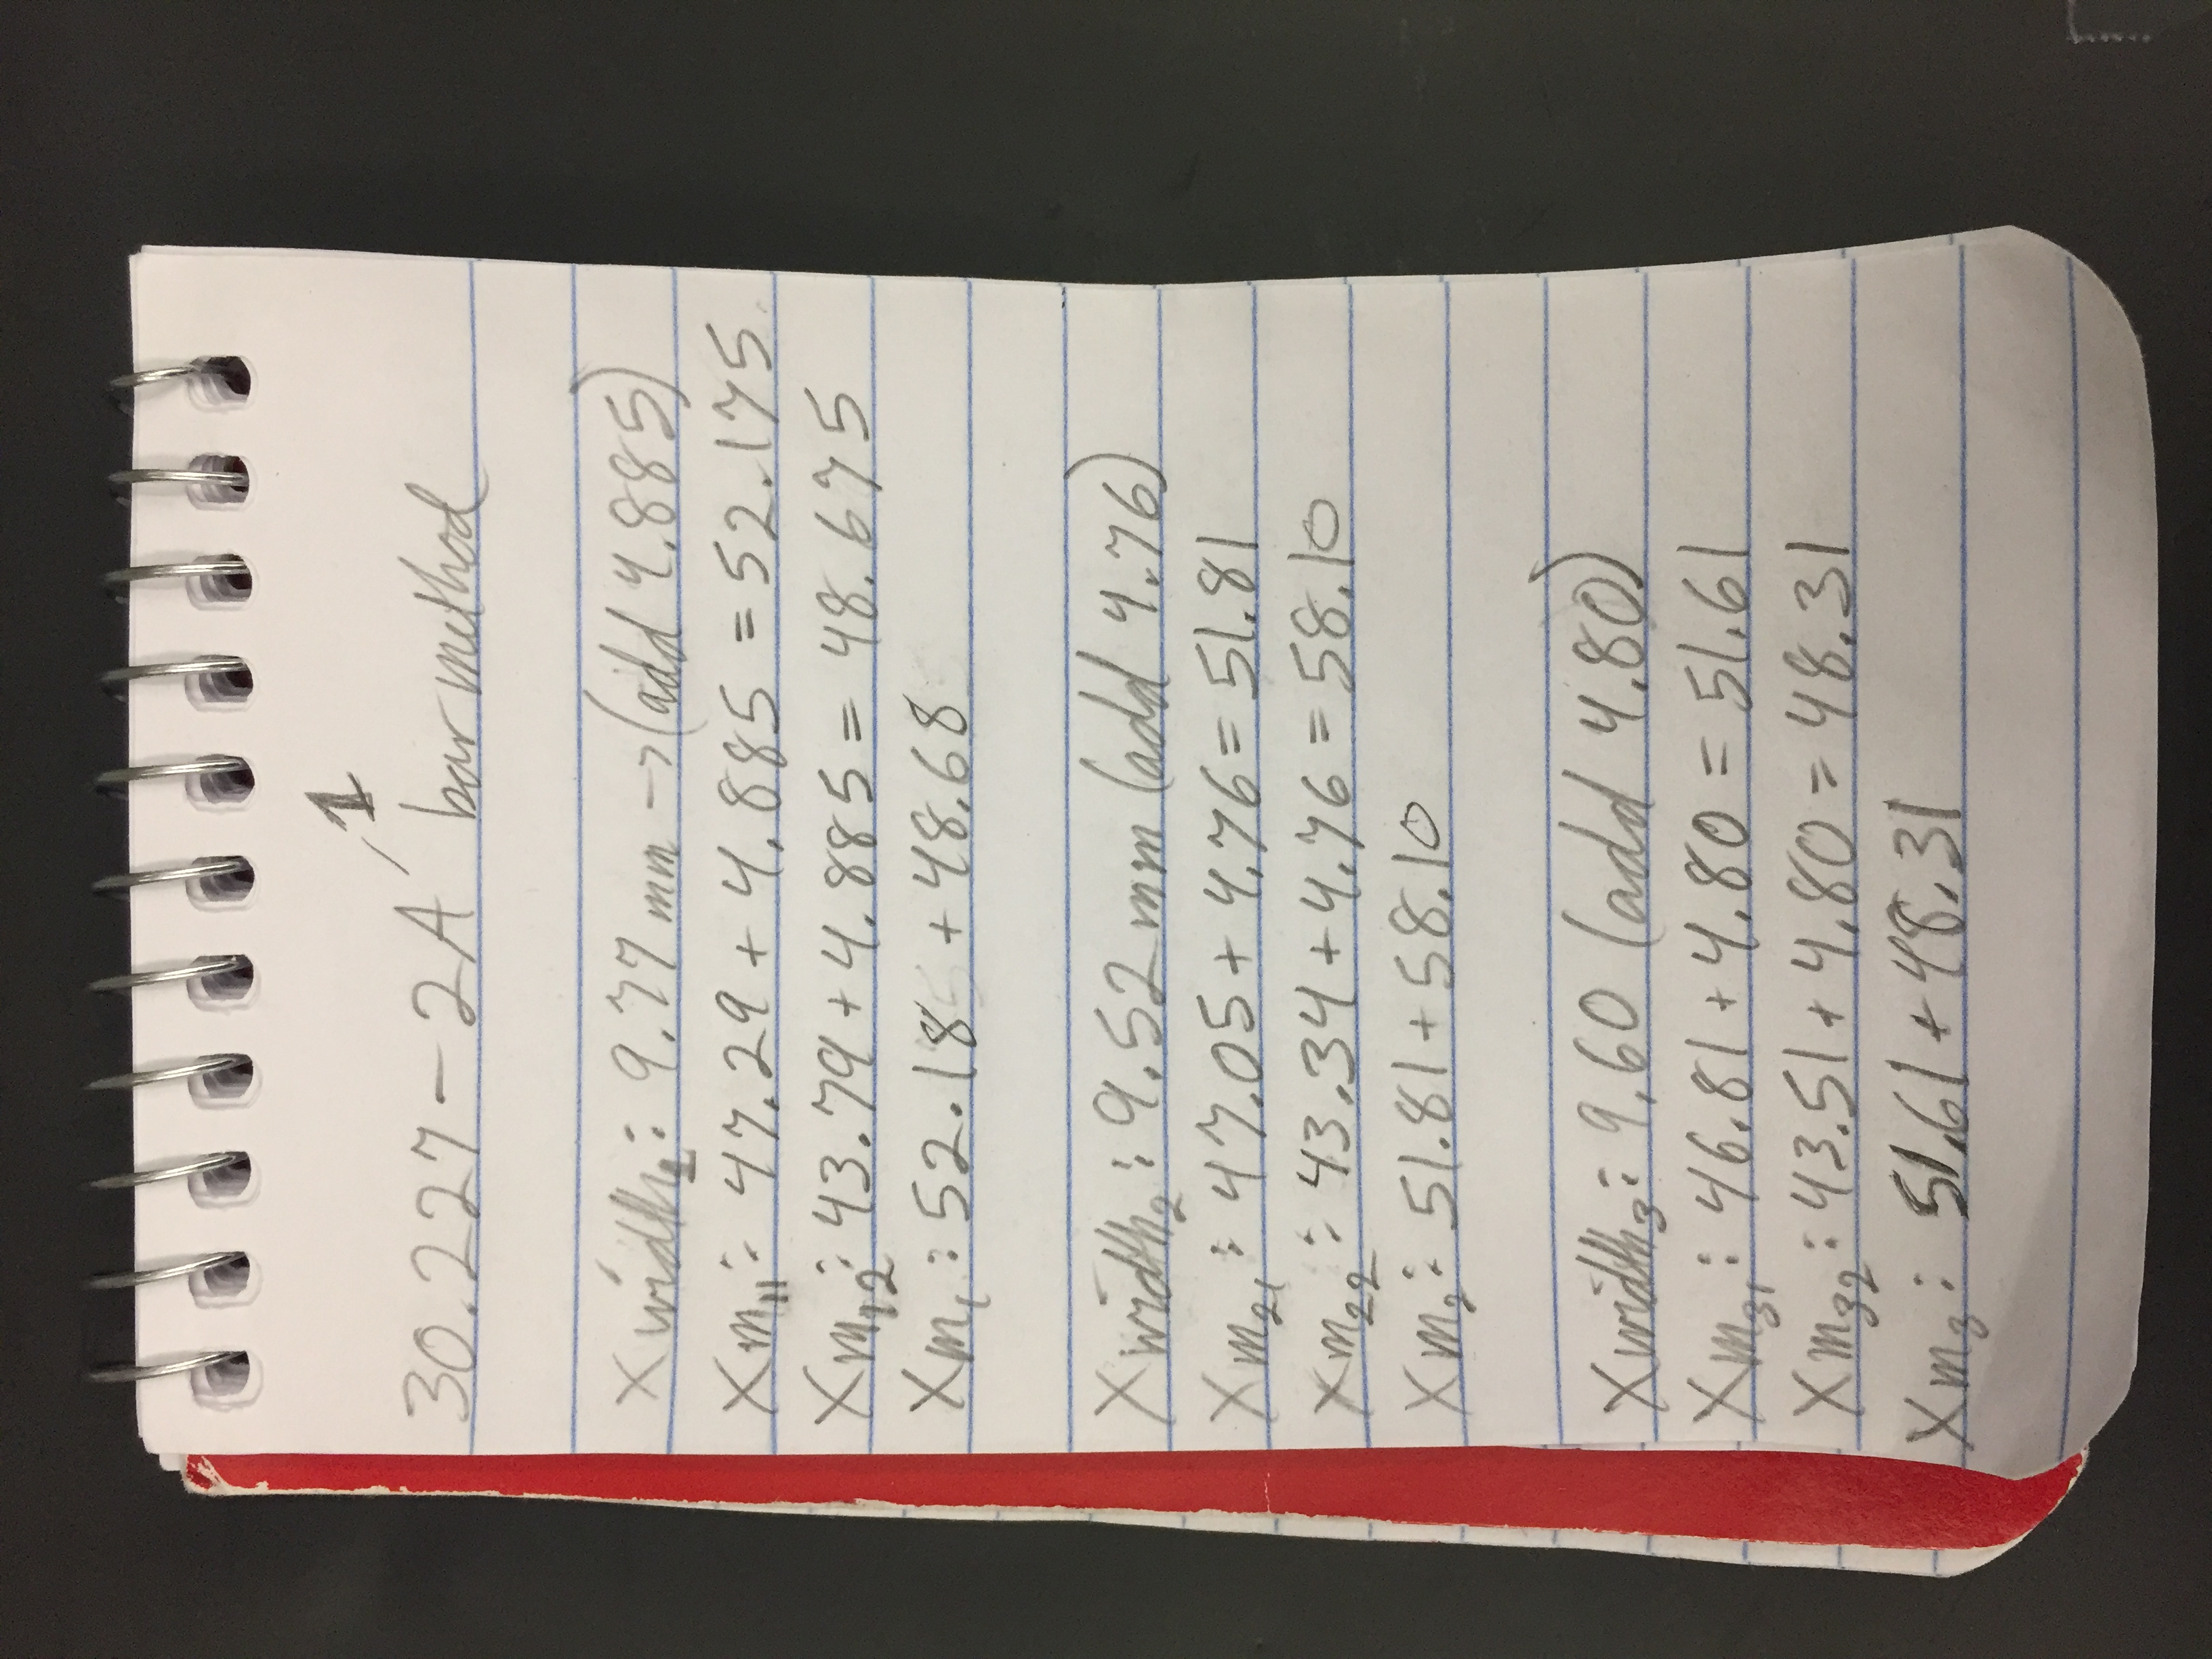 1
30.227-2A' bar method
Xwidth1: 9.77 mm → (add 4.885)
Xm11: 47.29 + 4.885 = 52.175
Xm12: 43.79 + 4.885 = 48.675
Xm1: 52.18 + 48.68
Xwidth2: 9.52 mm (add 4.76)
Xm21: 47.05 + 4.76 = 51.81
Xm22: 43.34 + 4.76 = 58.10
Xm2: 51.81 + 58.10
Xwidth3: 9.60 (add 4.80)
Xm31: 46.81 + 4.80 = 51.61
Xm32: 43.51 + 4.80 = 48.31
Xm3: 51.61 + 48.31